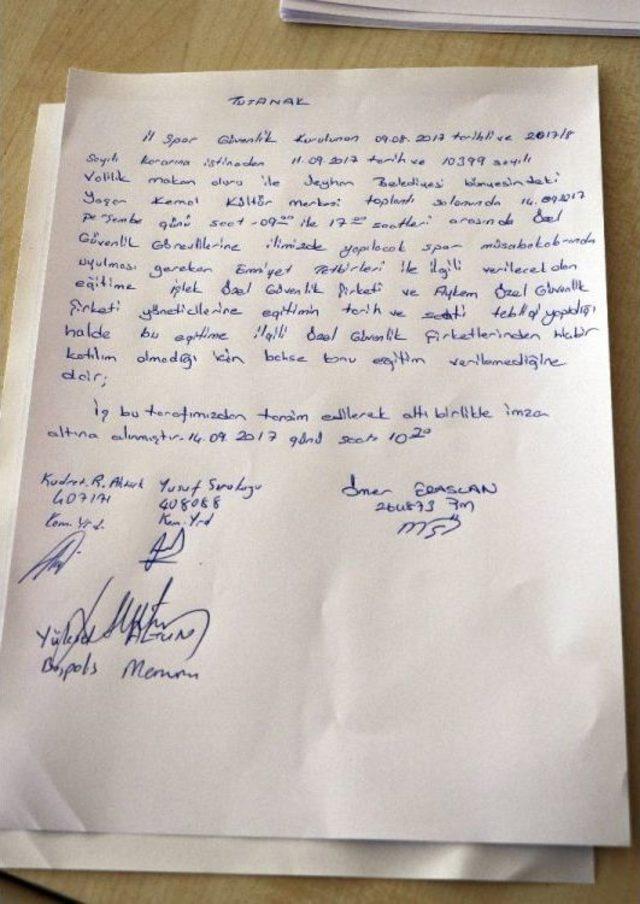 TUTANAK
İl Spor Güvenlik Kurulunun 09.08.2017 tarihli ve 2017/8
Sayılı kararına istinaden 11.09.2017 tarih ve 10399 sayılı
Valilik makam oluru ile Seyhan Belediyesi bünyesindeki
Yaşar Kemal Kültür merkezi toplantı salonunda 14.09.2017
perşembe günü saat -09.00 ile 17.00 saatleri arasında Özel
Güvenlik Görevlilerine ilimizde yapılacak spor müsabakalarında
uyulması gereken Emniyet Tedbirleri ile ilgili verilecek olan
eğitime işlek Özel Güvenlik Şirketi ve Aykem Özel Güvenlik
Şirketi yöneticilerine eğitimin tarih ve saati tebliği yapıldığı
halde bu eğitime ilgili Özel Güvenlik Şirketlerinden hiçbir
katılım olmadığı için bahse konu eğitim verilemediğine
dair;
İş bu tarafımızdan tanzim edilerek altı birlikte imza
altına alınmıştır. 14.09.2017 günü saat: 10.20
Kudret.R. Yusuf
407171 408088
Kom.Yrd. Kom.Yrd
Ömer ERASLAN
264873
Yüksel ALTUN
Başpolis Memuru